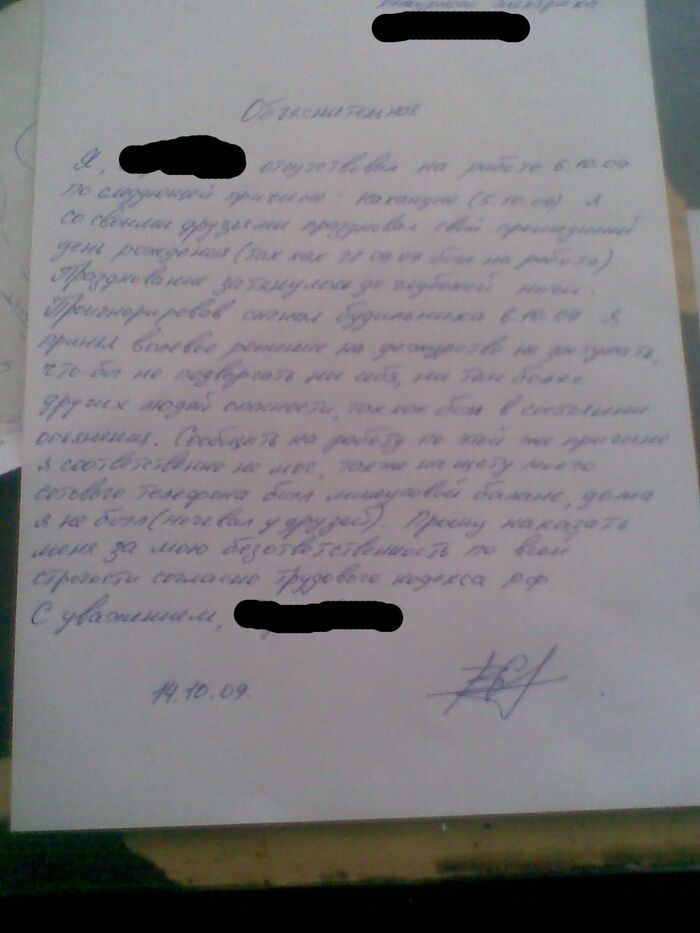 дежурного электрика
Объяснительная
Я, отсутствовал на работе 6.10.09
по следующей причине: накануне (5.10.09) я
со своими друзьями праздновал свой прошедший
день рождения (так как 28.09.09 был на работе)
Празднование затянулось до глубокой ночи.
Проигнорировав сигнал будильника 6.10.09 я
принял волевое решение на дежурство не заступать,
что бы не подвергать ни себя, ни тем более
других людей опасности, так как был в состоянии
опьянения. Сообщить на работу по этой же причине
я соответственно не мог, также на щету моего
сотового телефона был минусовой баланс, дома
я не был (ночевал у друзей). Прошу наказать
меня за мою безответственность по всей
строгости согласно трудового кодекса РФ
С уважением,
14.10.09.